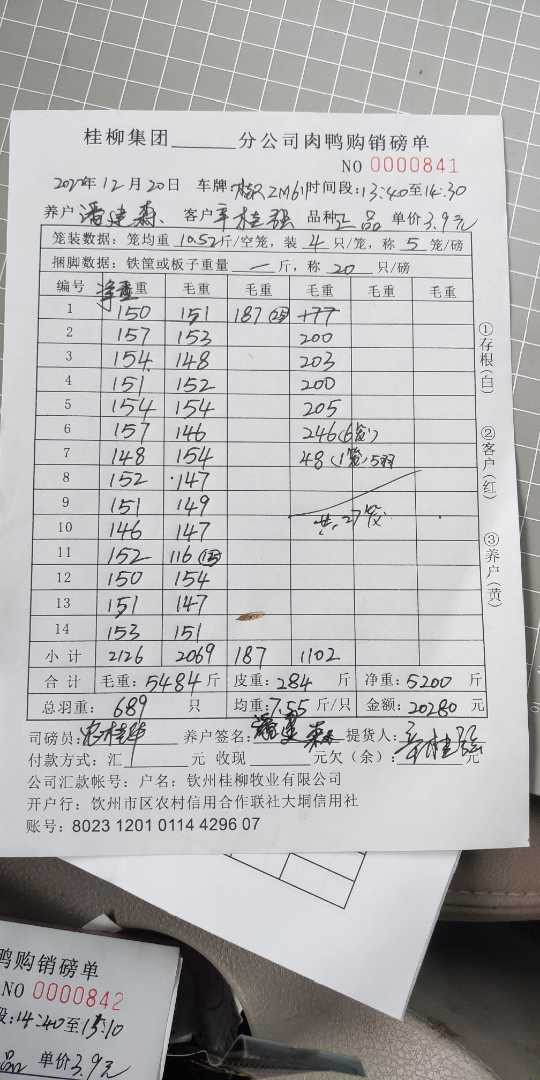 桂柳集团______分公司肉鸭购销磅单
NO 0000841
2022年12月20日 车牌 ZM61 时间段:13:40至14:30
养户 潘建森 客户 辛桂强 品种 正品 单价3.9元
笼装数据:笼均重 10.52斤/空笼,装 4 只/笼,称 5 笼/磅
捆脚数据:铁筐或板子重量 — 斤,称 20 只/磅
编号 净重 毛重 毛重 毛重 毛重 毛重
1 150 151 187 +77
2 157 153 200
3 154 148 203
4 151 152 200
5 154 154 205
6 157 146 246(6笼)
7 148 154 48(1笼)5羽
8 152 147
9 151 149
10 146 147 共:27笼
11 152 116
12 150 154
13 151 147
14 153 151
小计 2126 2069 187 1102
合计 毛重:5484斤 皮重:284 斤 净重:5200 斤
总羽重:689 只 均重:7.55斤/只 金额:20280 元
司磅员: 农桂华 养户签名: 潘建森 提货人: 辛桂强
付款方式:汇 元 收现 元欠(余): 元
公司汇款帐号:户名:钦州桂柳牧业有限公司
开户行:钦州市区农村信用合作联社大垌信用社
账号:8023 1201 0114 4296 07
①存根(白)
②客户(红)
③养户(黄)
鸭购销磅单
NO 0000842
段:14:40至15:10
品 单价3.9元